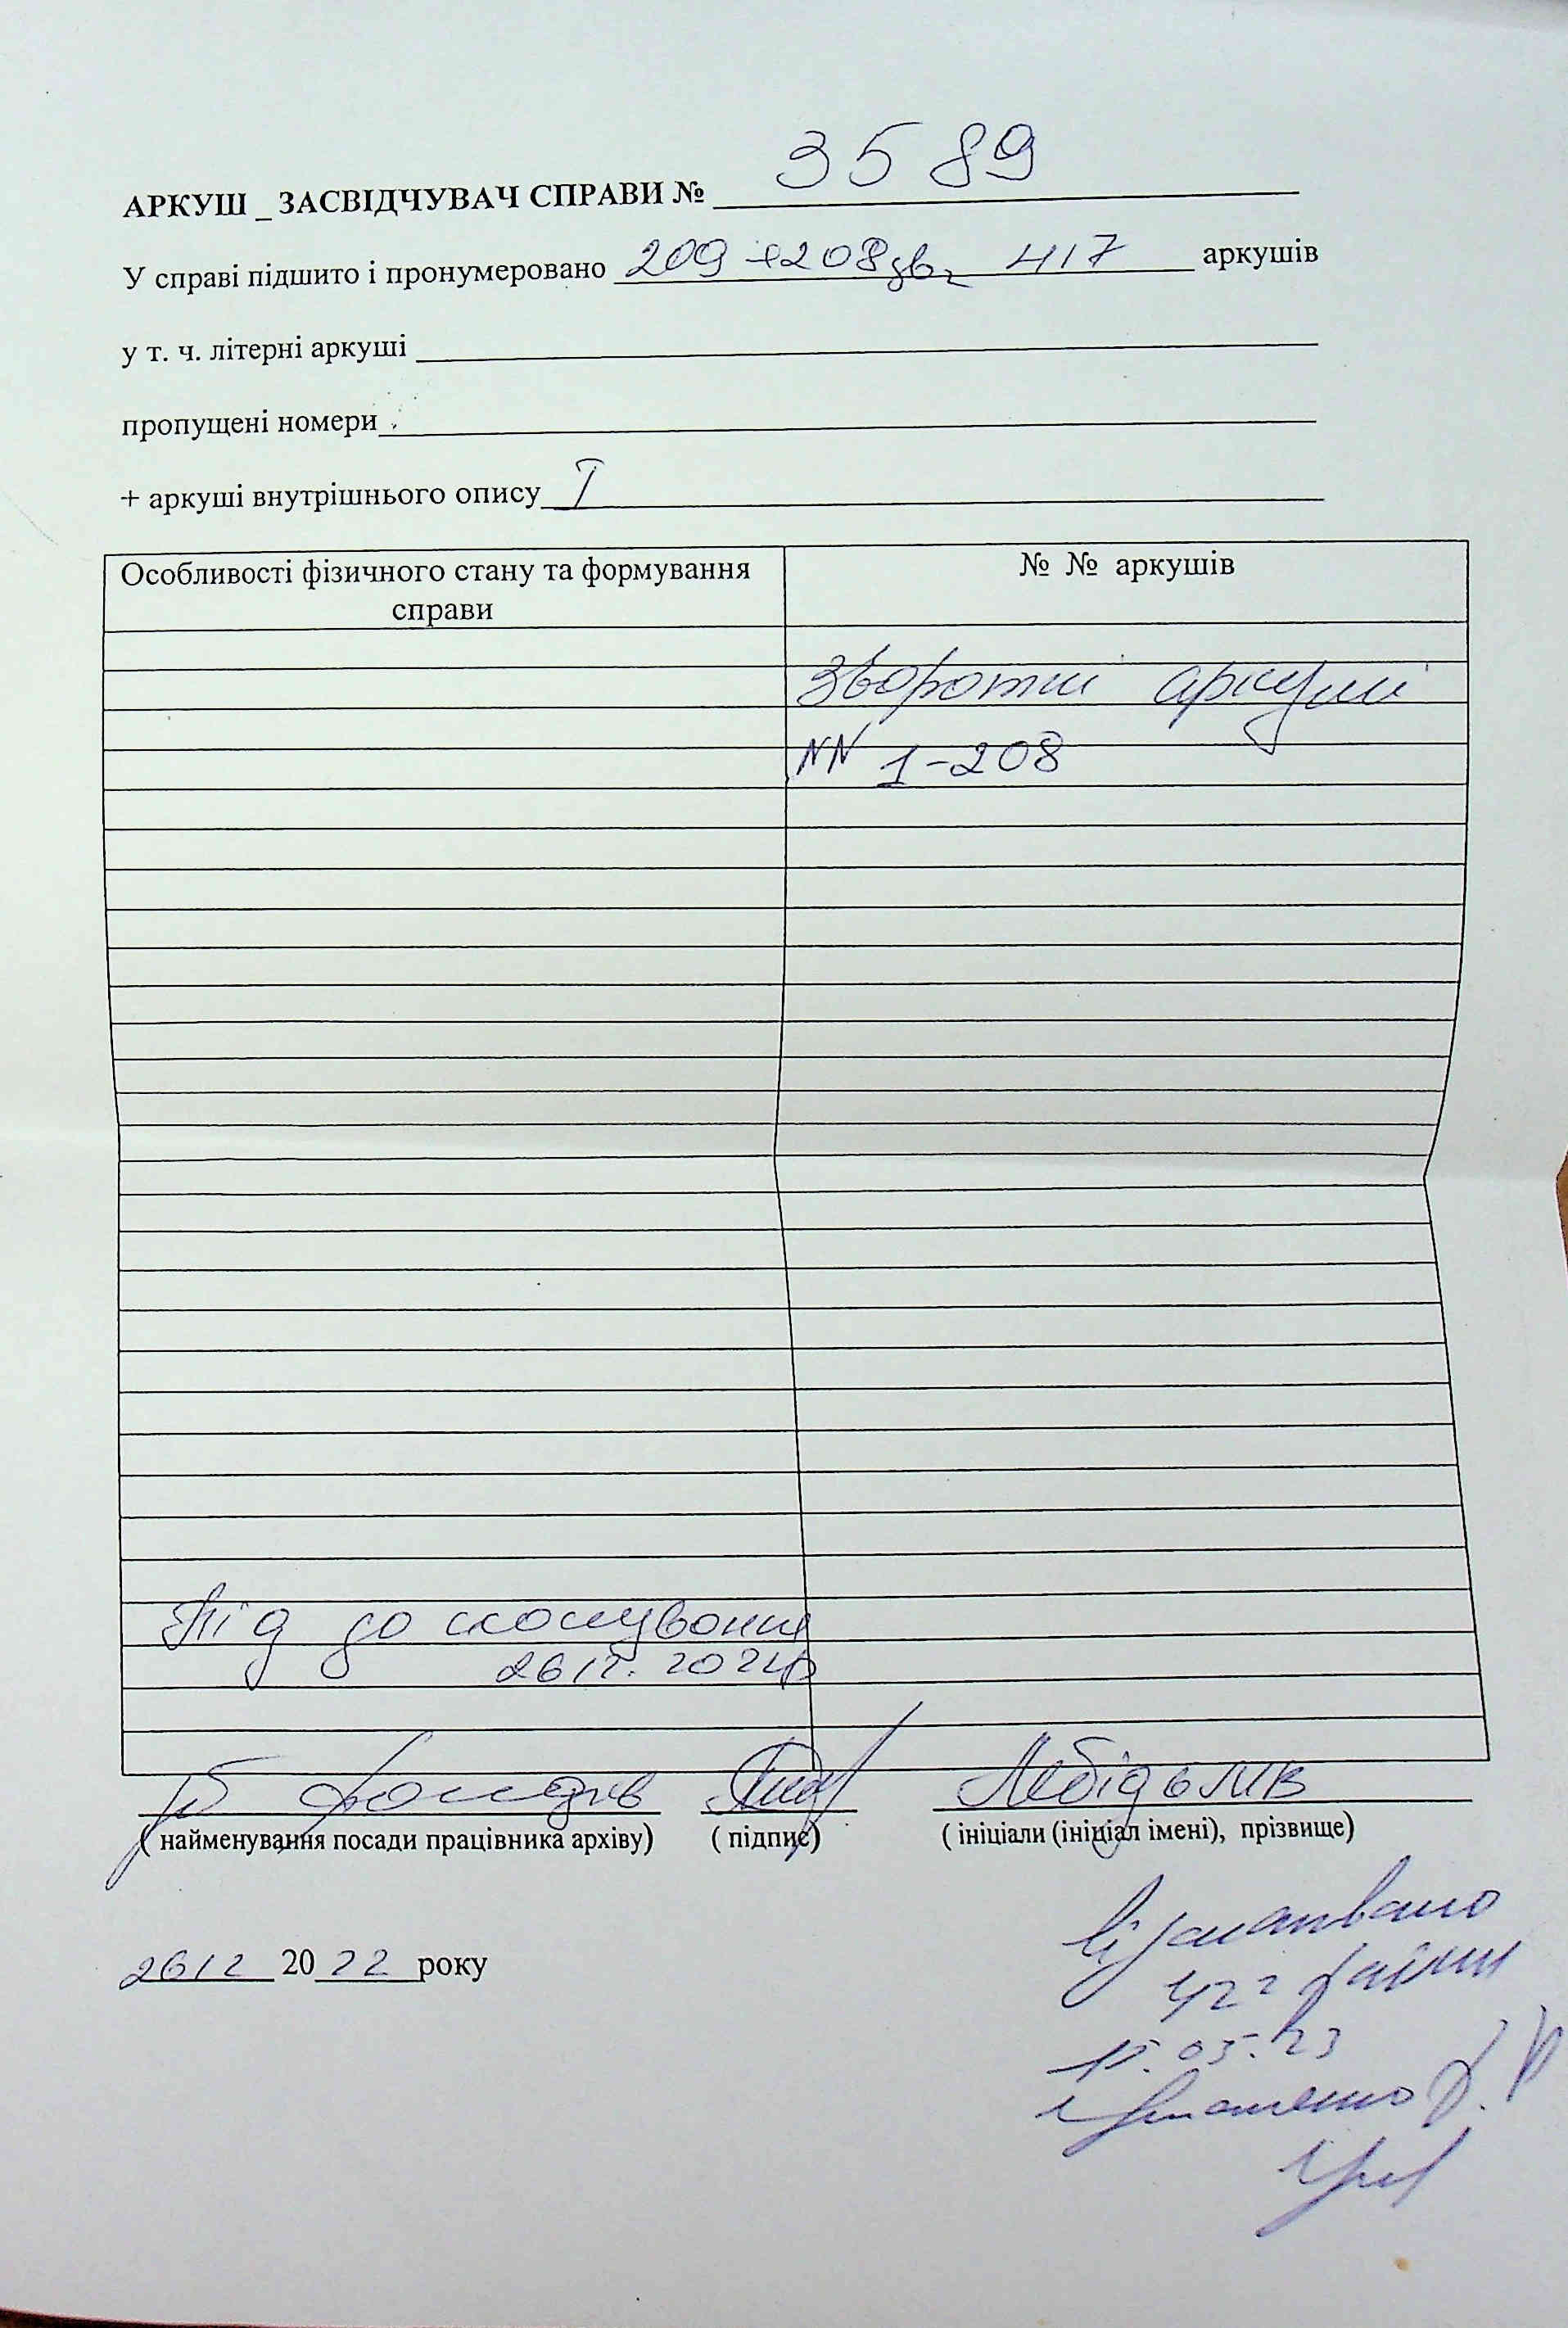 3589
АРКУШ _ ЗАСВІДЧУВАЧ СПРАВИ №
У справі підшито і пронумеровано 209 +208зв, 417 аркушів
у т. ч. літерні аркуші
пропущені номери
+ аркуші внутрішнього опису I
Особливості фізичного стану та формування справи
№ № аркушів
Зворотні аркуші
NN 1-208
Під до сканування
2612.
зб фондів
Лебідь МВ
( найменування посади працівника архіву) ( підпис) ( ініціали (ініціал імені), прізвище)
Відскановано
422 файли
2612 2022 року
15.05.23